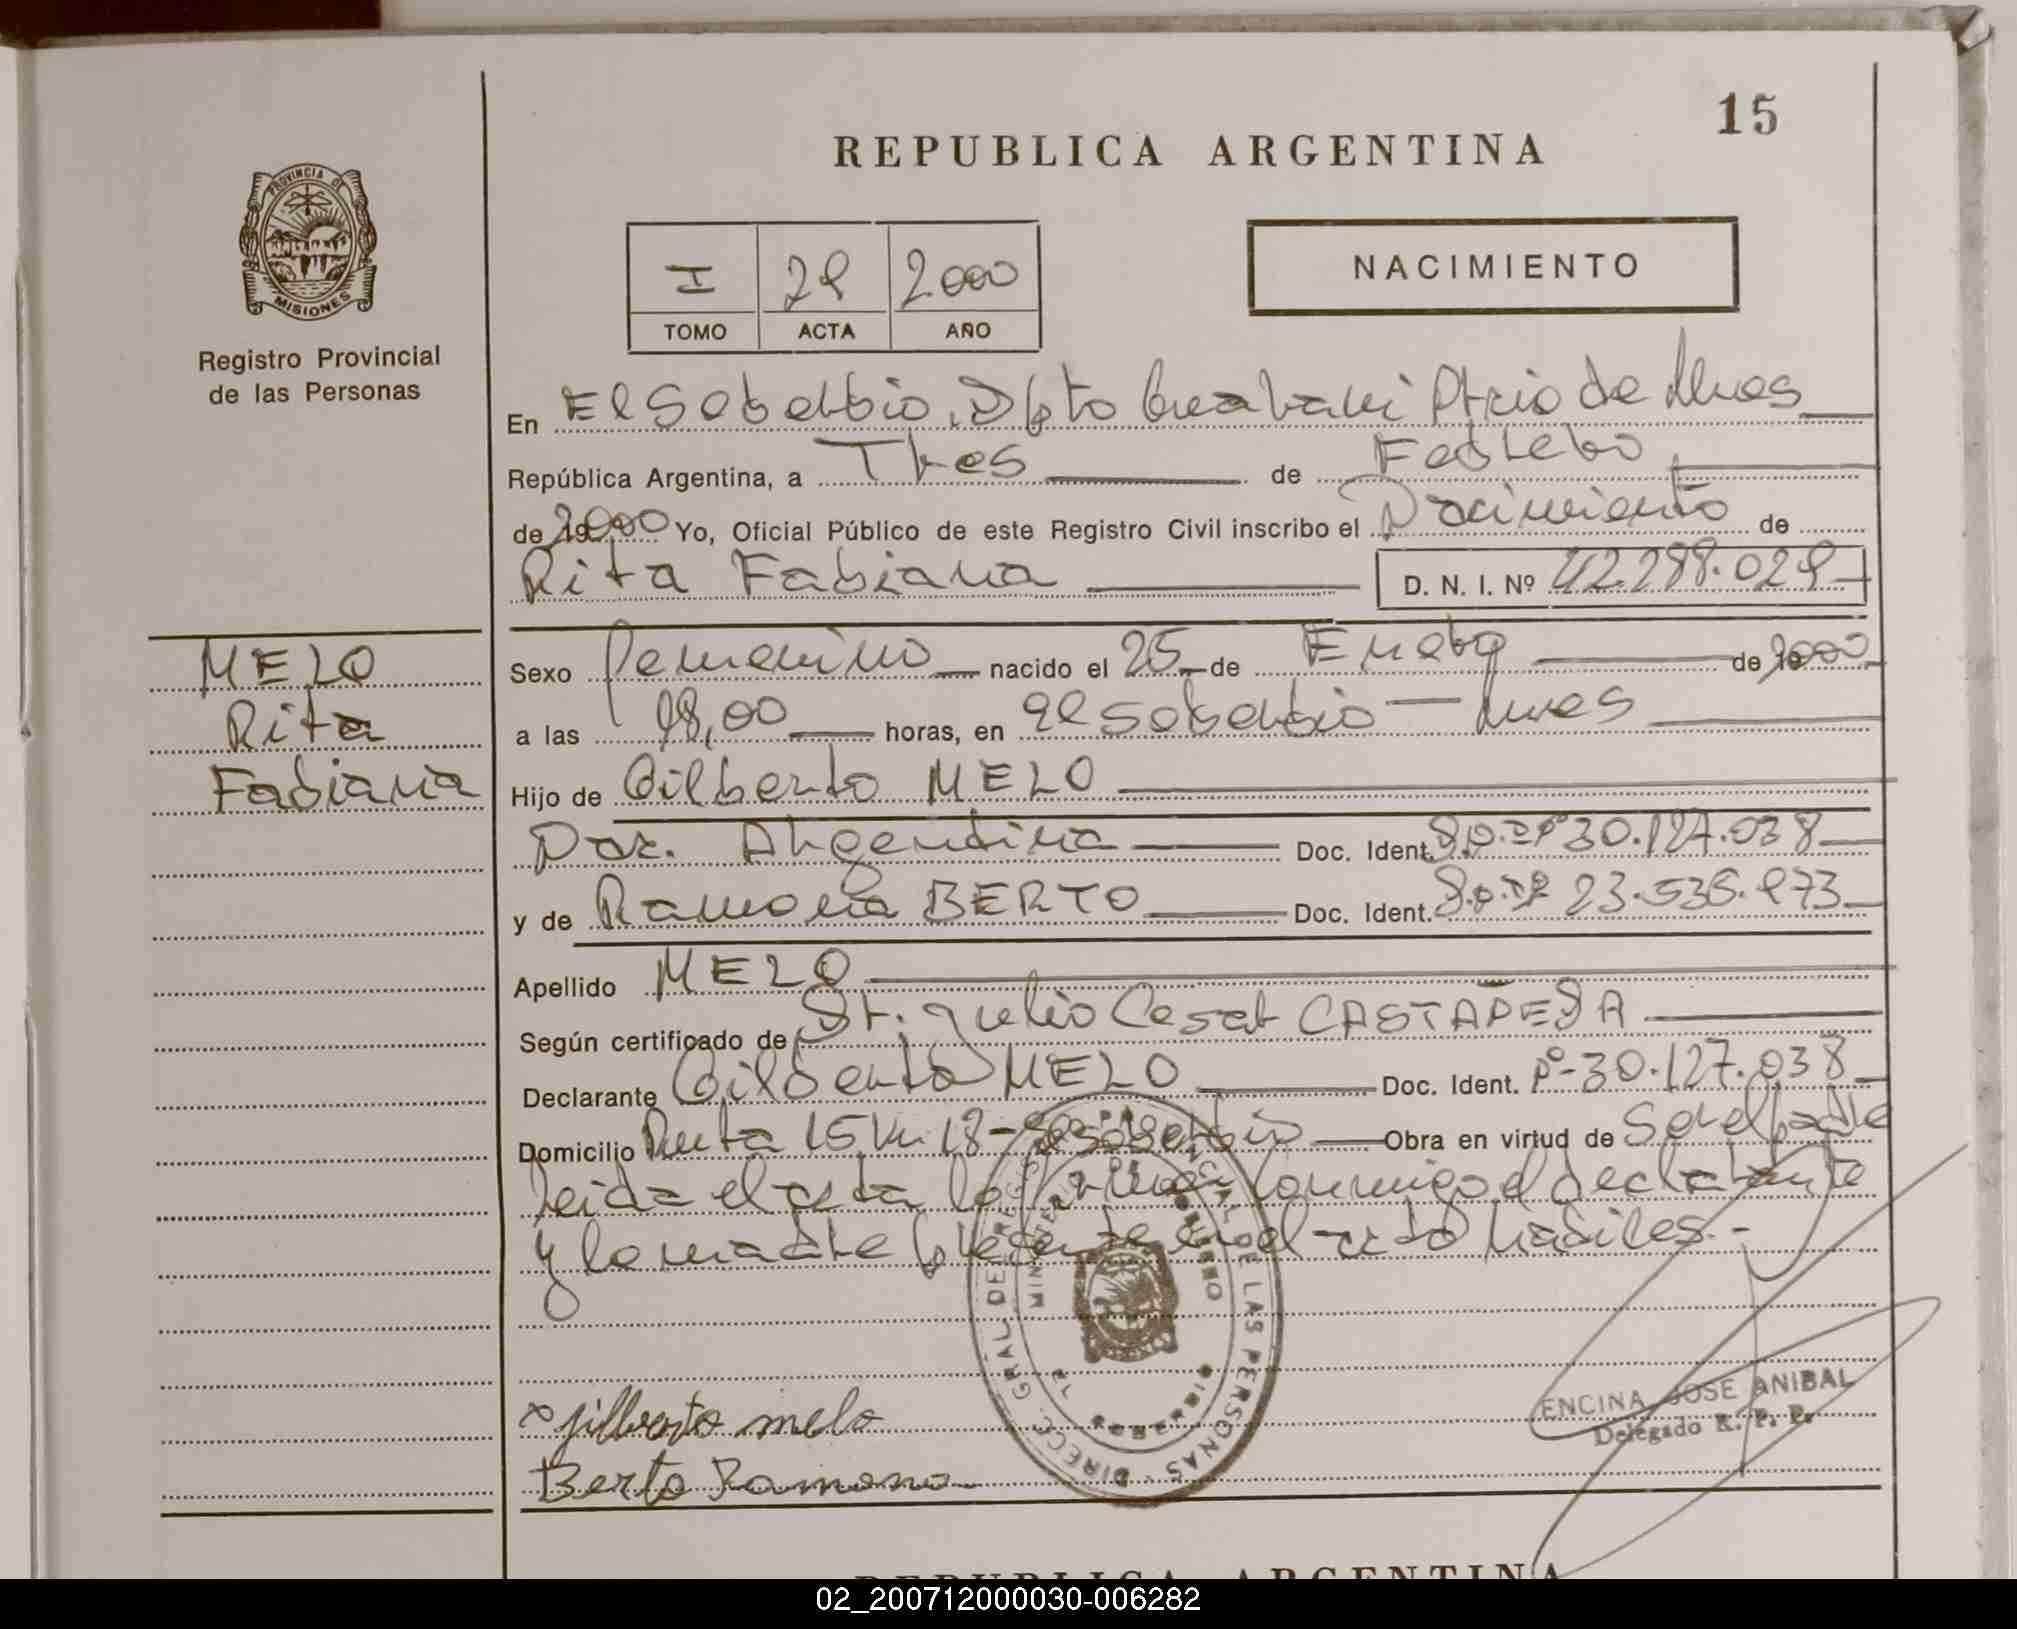 15
REPUBLICA ARGENTINA
PROVINCIA DE
MISIONES
Registro Provincial
de las Personas
I 29 2000
TOMO ACTA AÑO
NACIMIENTO
En El Soberbio, Dpto Guarani Pcia de Mnes
República Argentina, a Tres de Febrero
de 2000 Yo, Oficial Público de este Registro Civil inscribo el Nacimiento de
Rita Fabiana D. N. I. Nº 42.298.029
MELO
Rita
Fabiana
Sexo Femenino nacido el 25 de Enero de 2000
a las 18,00 horas, en El Soberbio - Mnes
Hijo de Gilberto MELO
Nac. Argentina Doc. Ident. Nº 30.127.038
y de Ramona BERTO Doc. Ident. 23.535.973
Apellido MELO
Según certificado de Dr. Julio Cesar CASTAÑEDA
Declarante Gilberto MELO Doc. Ident. Nº 30.127.038
Domicilio Ruta 15 Km 18 - El Soberbio Obra en virtud de Ser el padre
Leida el acta la firman conmigo el declarante
y la madre presente en el acto habiles.-
DIRECC. GRAL DE REGISTRO PROVINCIAL DE LAS PERSONAS
ENCINA JOSE ANIBAL
Delegado R. P. P.
Gilberto melo
Berto Ramona
REPUBLICA ARGENTINA
02_200712000030-006282